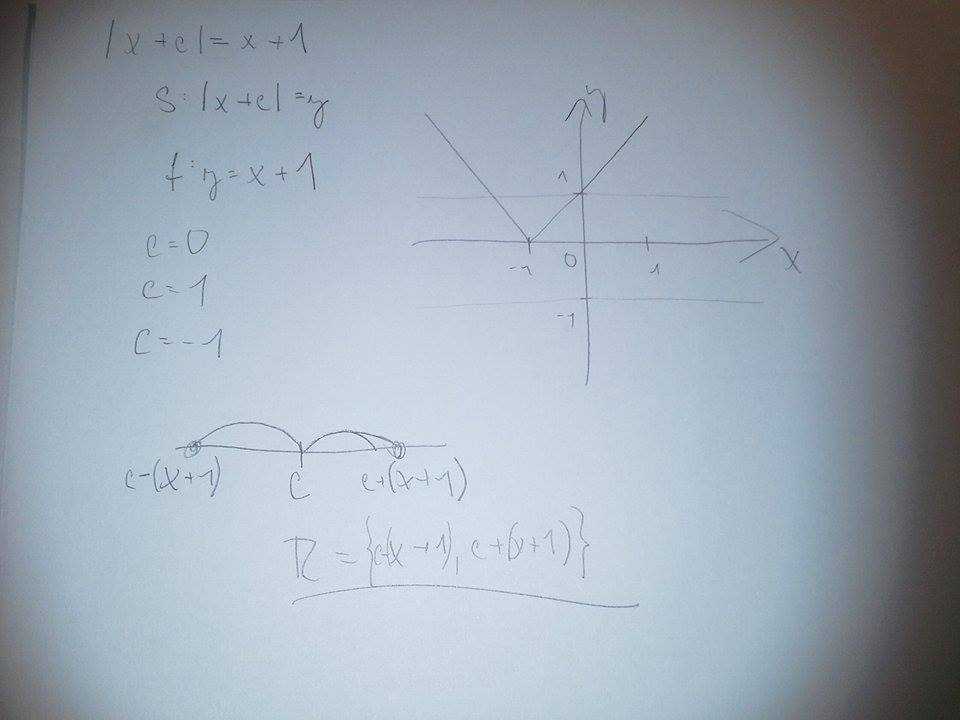 |x+c|=x+1
s: |x+c|=y
f: y=x+1
c=0
c=1
c=-1
y
1
-1 0 1 x
-1
c-(x+1) c c+(x+1)
R={c-(x+1), c+(x+1)}